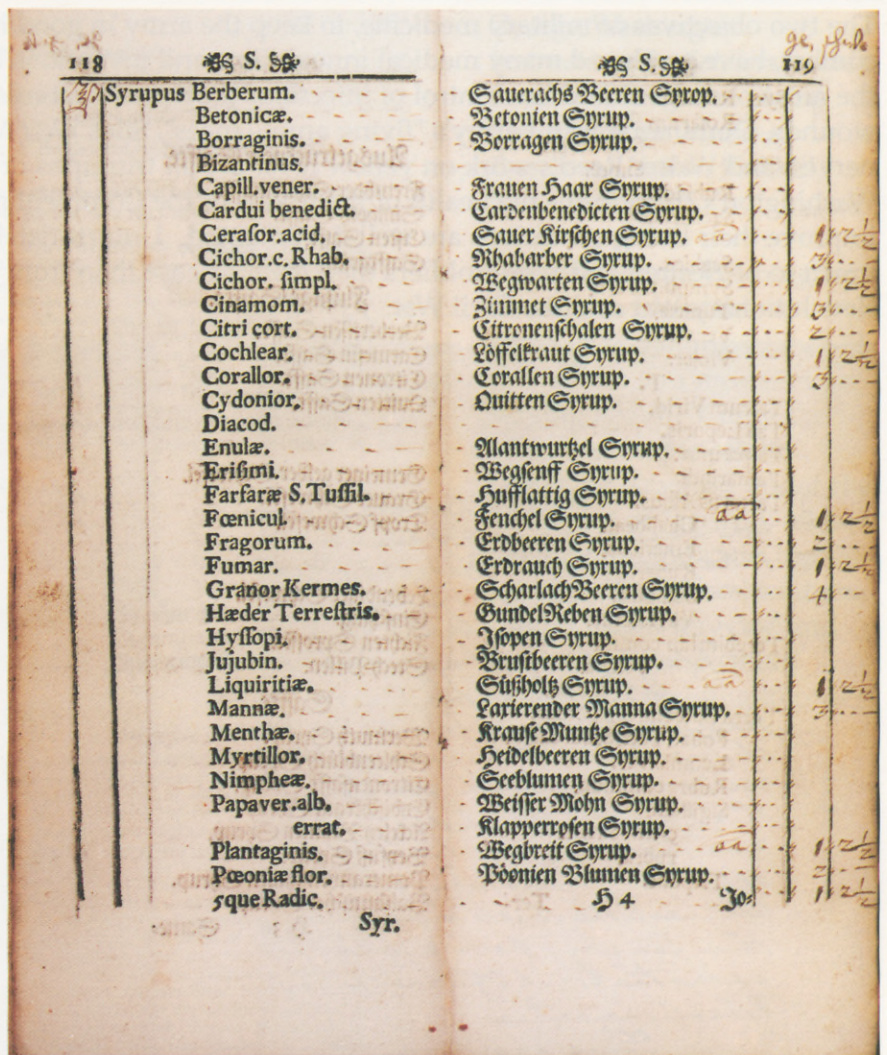 118 S.
Syrupus Berberum.
Betonicæ.
Borraginis.
Bizantinus.
Capill.vener.
Cardui benedict.
Ceraſor.acid.
Cichor.c.Rhab.
Cichor. ſimpl.
Cinamom.
Citri cort.
Cochlear.
Corallor.
Cydonior.
Diacod.
Enulæ.
Eriſimi.
Farfaræ S.Tuſſil.
Fœnicul.
Fragorum.
Fumar.
Granor Kermes.
Hæder Terreſtris.
Hyſſopi.
Jujubin.
Liquiritiæ.
Mannæ.
Menthæ.
Myrtillor.
Nimpheæ.
Papaver.alb.
errat.
Plantaginis.
Pœoniæ flor.
5que Radic.
Syr.
S. 119
Sauerachs Beeren Syrop.
Betonien Syrup.
Borragen Syrup.
Frauen Haar Syrup.
Cardenbenedicten Syrup.
Sauer Kirſchen Syrup. aa 1 2½
Rhabarber Syrup. 3
Wegwarten Syrup. 1 2½
Zimmet Syrup. 3
Citronenſchalen Syrup. 2
Löffelkraut Syrup. 1 2½
Corallen Syrup. 3
Quitten Syrup.
Alantwurtzel Syrup.
Wegſenff Syrup.
Hufflattig Syrup.
Fenchel Syrup. aa 1 2½
Erdbeeren Syrup. 2
Erdrauch Syrup. 1 2½
ScharlachBeeren Syrup. 4
GundelReben Syrup.
Iſopen Syrup.
Bruſtbeeren Syrup.
Süßholtz Syrup. aa 1 2½
Laxierender Manna Syrup. 3
Krauſe Muntze Syrup.
Heidelbeeren Syrup.
Seeblumen Syrup.
Weiſſer Mohn Syrup.
Klapperroſen Syrup.
Wegbreit Syrup. aa 1 2½
Pöonien Blumen Syrup. 2
H 4 Jo- 1 2½